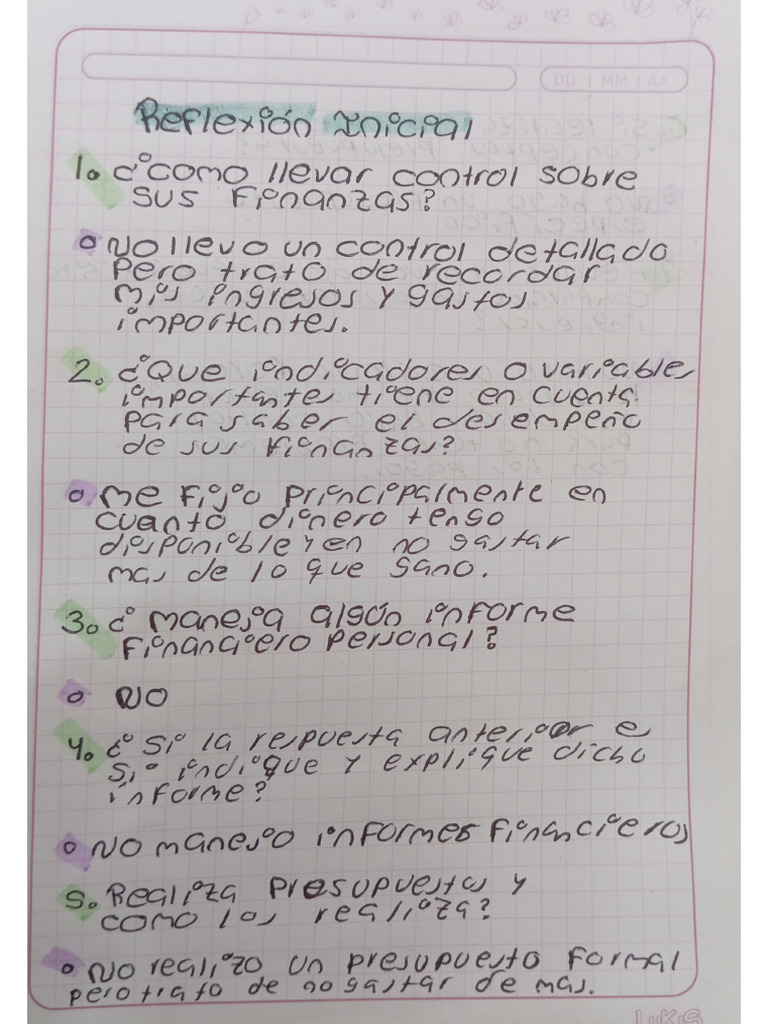 DD | MM | AA
Reflexión Inicial
1. ¿como llevar control sobre
sus finanzas?
No llevo un control detallado
pero trato de recordar
mis ingresos y gastos
importantes.
2. ¿Que indicadores o variables
importantes tiene en cuenta
para saber el desempeño
de sus finanzas?
me fijo principalmente en
cuanto dinero tengo
disponible y en no gastar
mas de lo que gano.
3. ¿maneja algún informe
financiero personal?
NO
4. ¿Si la respuesta anterior es
si indique y explique dicho
informe?
No manejo informes financieros
5. Realiza presupuestos y
como los realiza?
No realizo un presupuesto formal
pero trato de no gastar de mas.
LUKIS